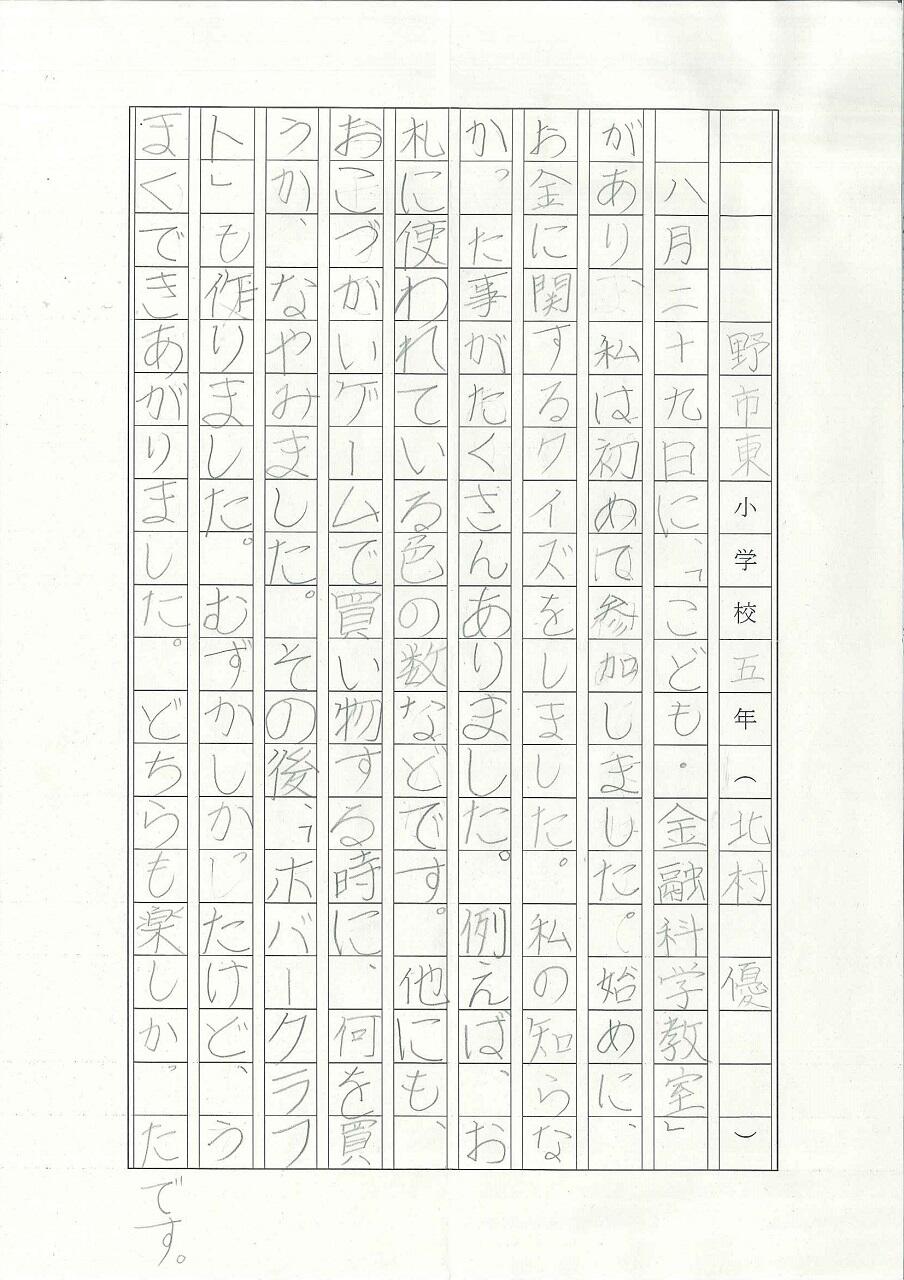 野市東小学校五年（北村 優 ）
八月二十九日に、「こども・金融科学教室」
があり、私は初めて参加しました。始めに、
お金に関するクイズをしました。私の知らな
かった事がたくさんありました。例えば、お
札に使われている色の数などです。他にも、
おこづがいゲームで買い物する時に、何を買
うか、なやみました。その後、「ホバークラフ
ト」も作りました。むずかしかしたけど、う
まくできあがりました。どちらも楽しかった
です。